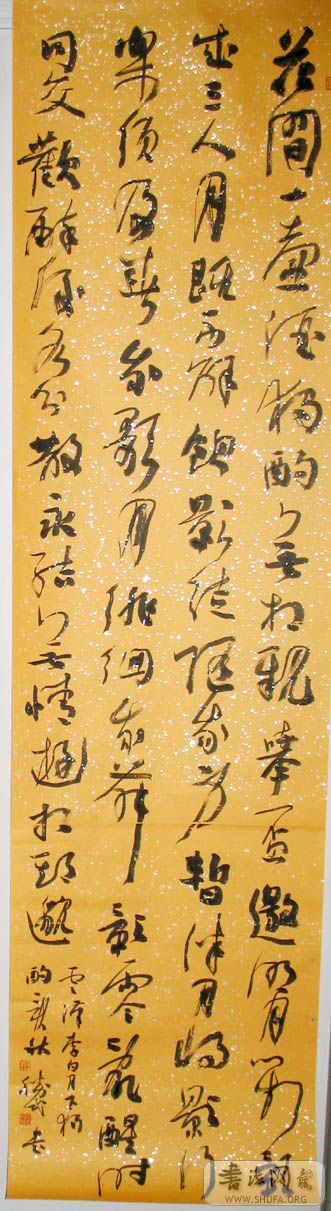 花間一壺酒獨酌無相親舉杯邀明月對影
成三人月既不解飲影徒隨我身暫伴月將影行
樂須及春我歌月徘徊我舞影零亂醒時
同交歡醉後各分散永結無情遊相期邈
雲漢李白月下獨
酌
書法
WWW.SHUFA.ORG